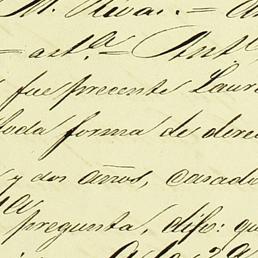 M. Rivas. = A
= ast.ª = Ant
fue precente Laur
toda forma de derec
y dos años, casado
pregunta, dijo: qu
A la 2ª